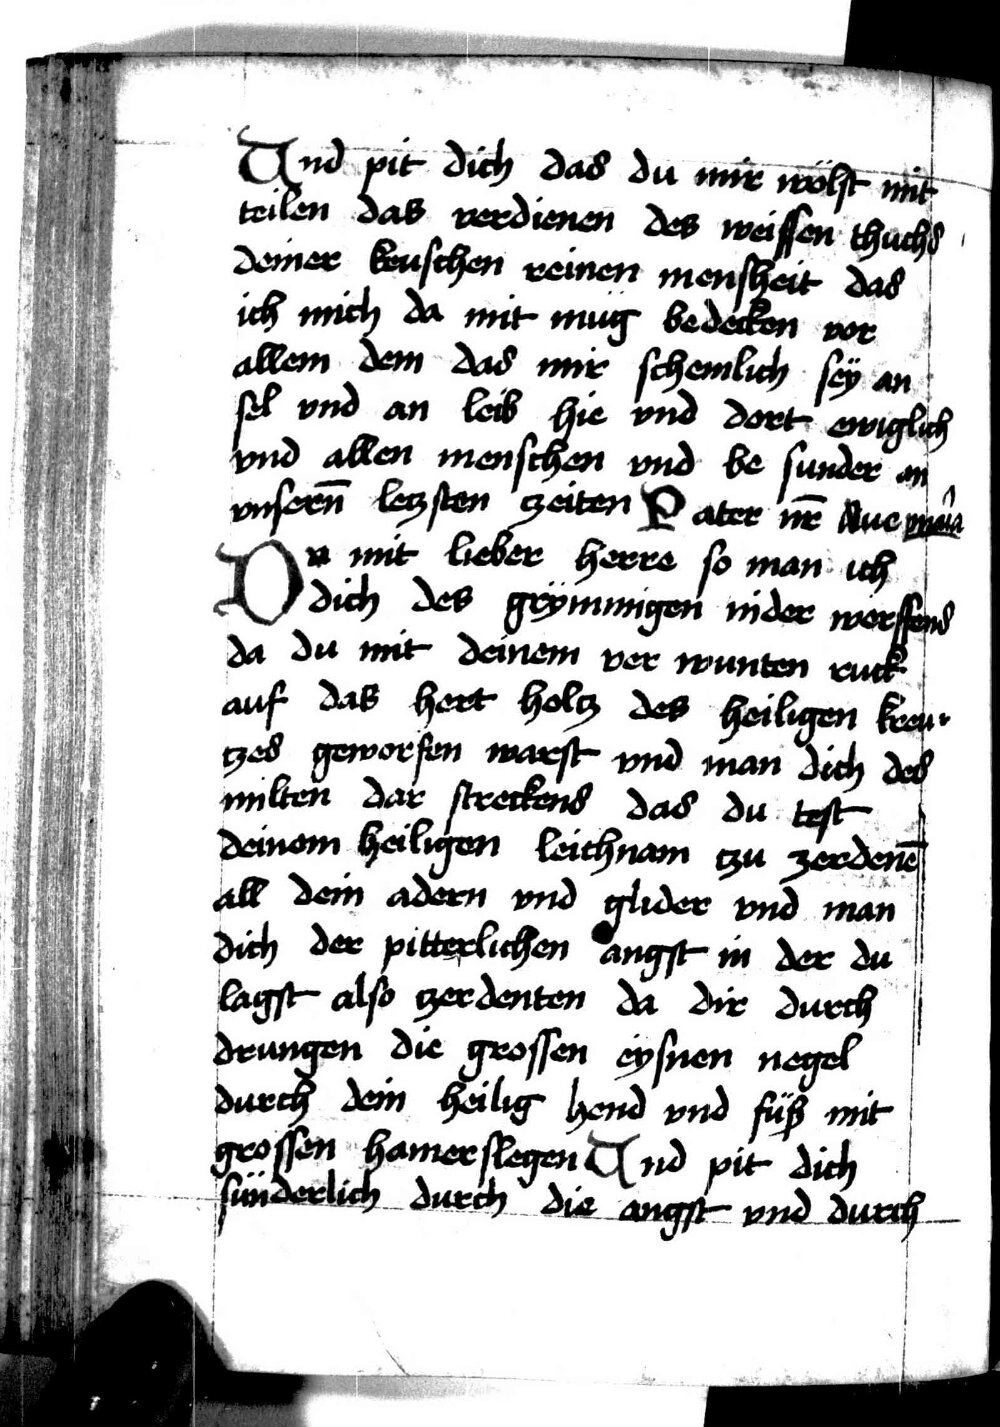 Und pit dich das du mir wölst mit
teilen das verdienen des weissen thuchs
deiner keuschen reinen mensheit das
ich mich da mit müg bedecken vor
allem dem das mir schemlich sëy an
sel vnd an leib hie vnd dort ewiglich
vnd allen menschen vnd be sunder an
vnsern̄ letzsten tzeiten Pater nr̄ Aue maria
Da mit lieber herre so man ich
dich des grÿmmigen nider werffens
da du mit deinem ver wunten ruck
auf das hert holtz des heiligen kreu-
tzes geworfen warst vnd man dich des
milten dar streckens das du test
deinem heiligen leichnam tzu zerdenē
all dein adern vnd glider vnd man
dich der pitterlichen angst in der du
lagst also tzerdenten da dir durch
drungen die grossen eysnen negel
durch dein heilig hend vnd füß mit
grossen hamerslegen Und pit dich
sünderlich durch die angst vnd durch